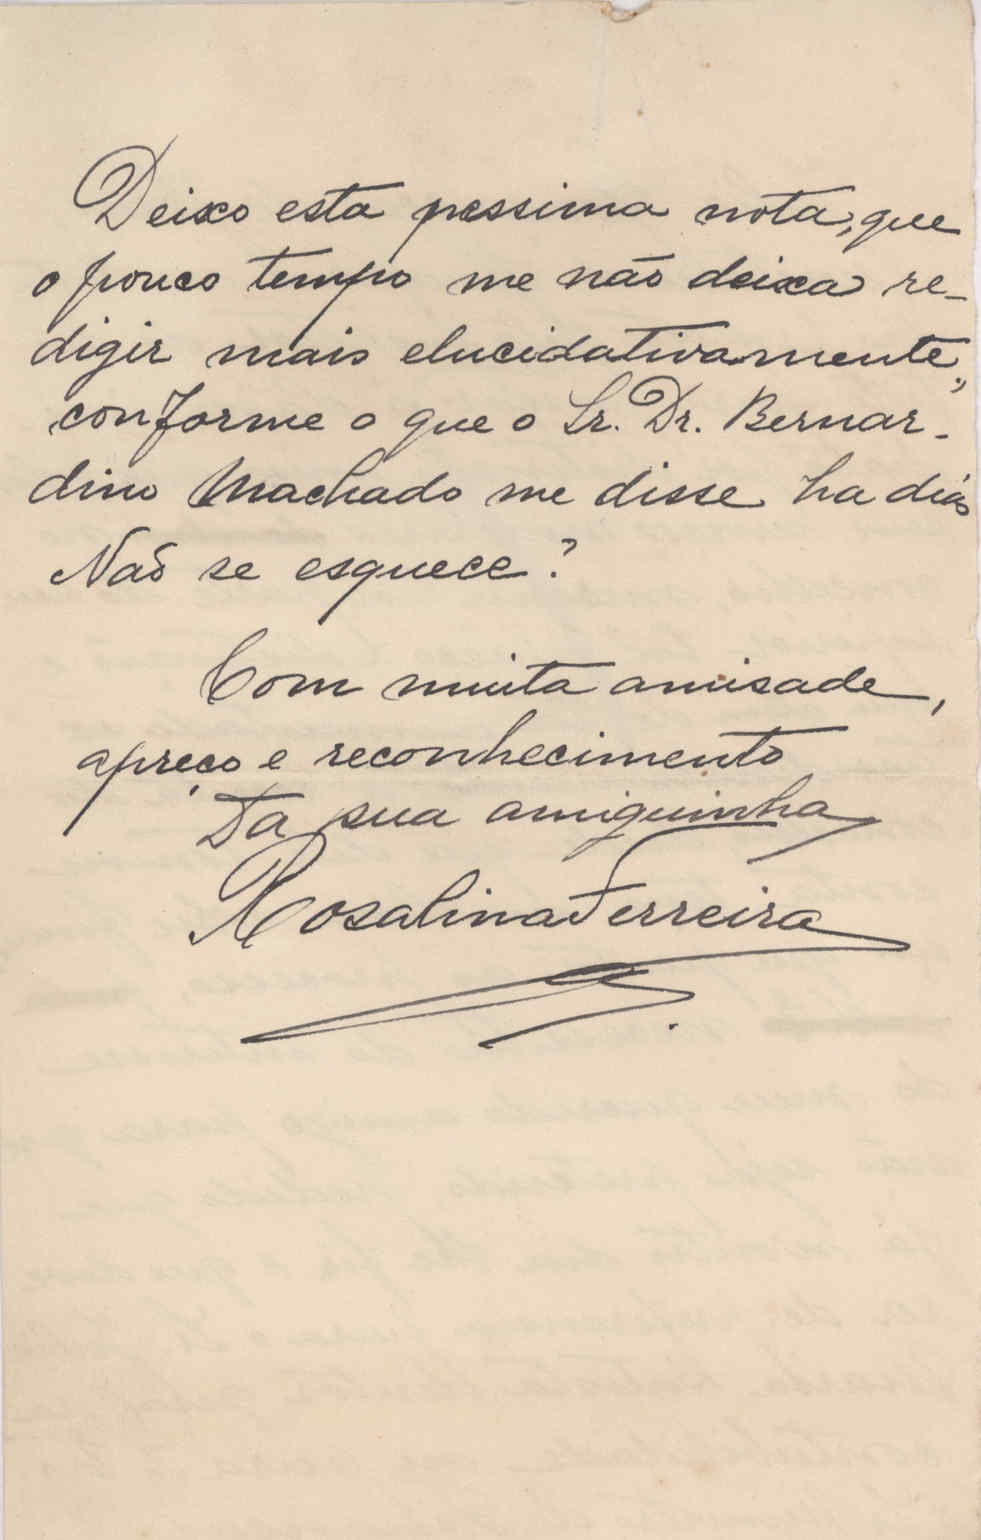 Deixo esta pessima nota, que
o pouco tempo me não deixa re-
digir mais elucidativamente,
conforme o que o Sr. Dr. Bernar-
dino Machado me disse ha dias
Não se esquece?
Com muita amisade,
apreço e reconhecimento
Da sua amiguinha
Rosalina Ferreira